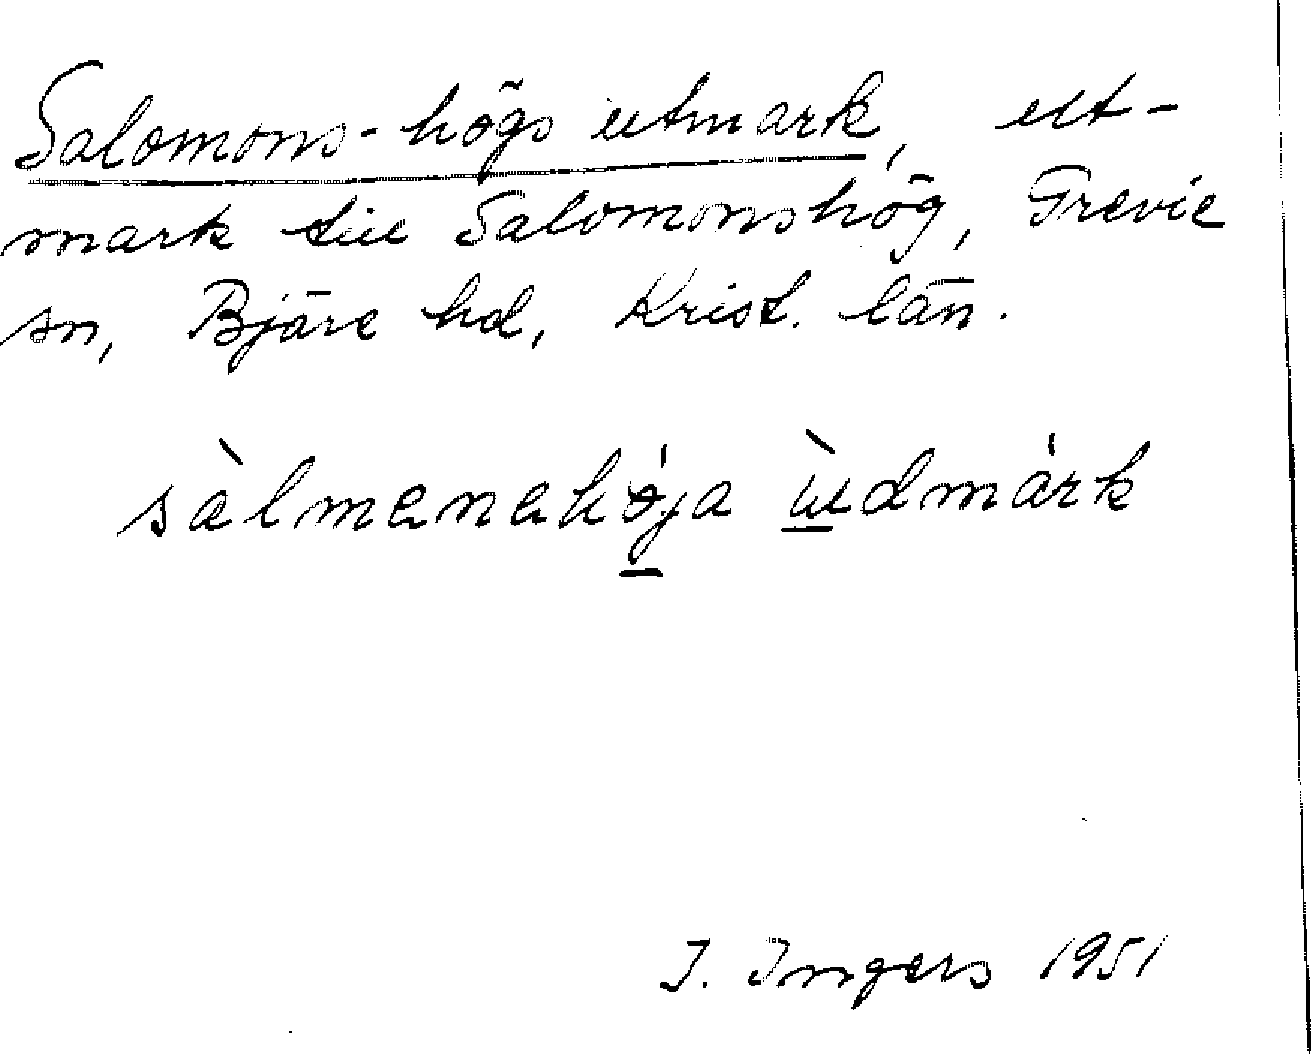 Salomons-högs utmark, ut-
mark till Salomonshög, Grevie
sn, Bjäre hd, Krist. län.
sàlmanahǿja ùdmárk
I. Ingers 1951